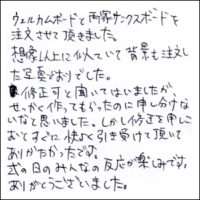 ウェルカムボードと両家サンクスボードを
注文させて頂きました。
想像以上に似ていて背景も注文し
た写真どおりでした。
修正可と聞いてはいましたが、
せっかく作ってもらったのに申し分けな
いなと思いました。しかし修正を申しに
おくとすぐに快よく引き受けて頂いて
ありがたかったです。
式の日のみんなの反応が楽しみです。
ありがとうございました。